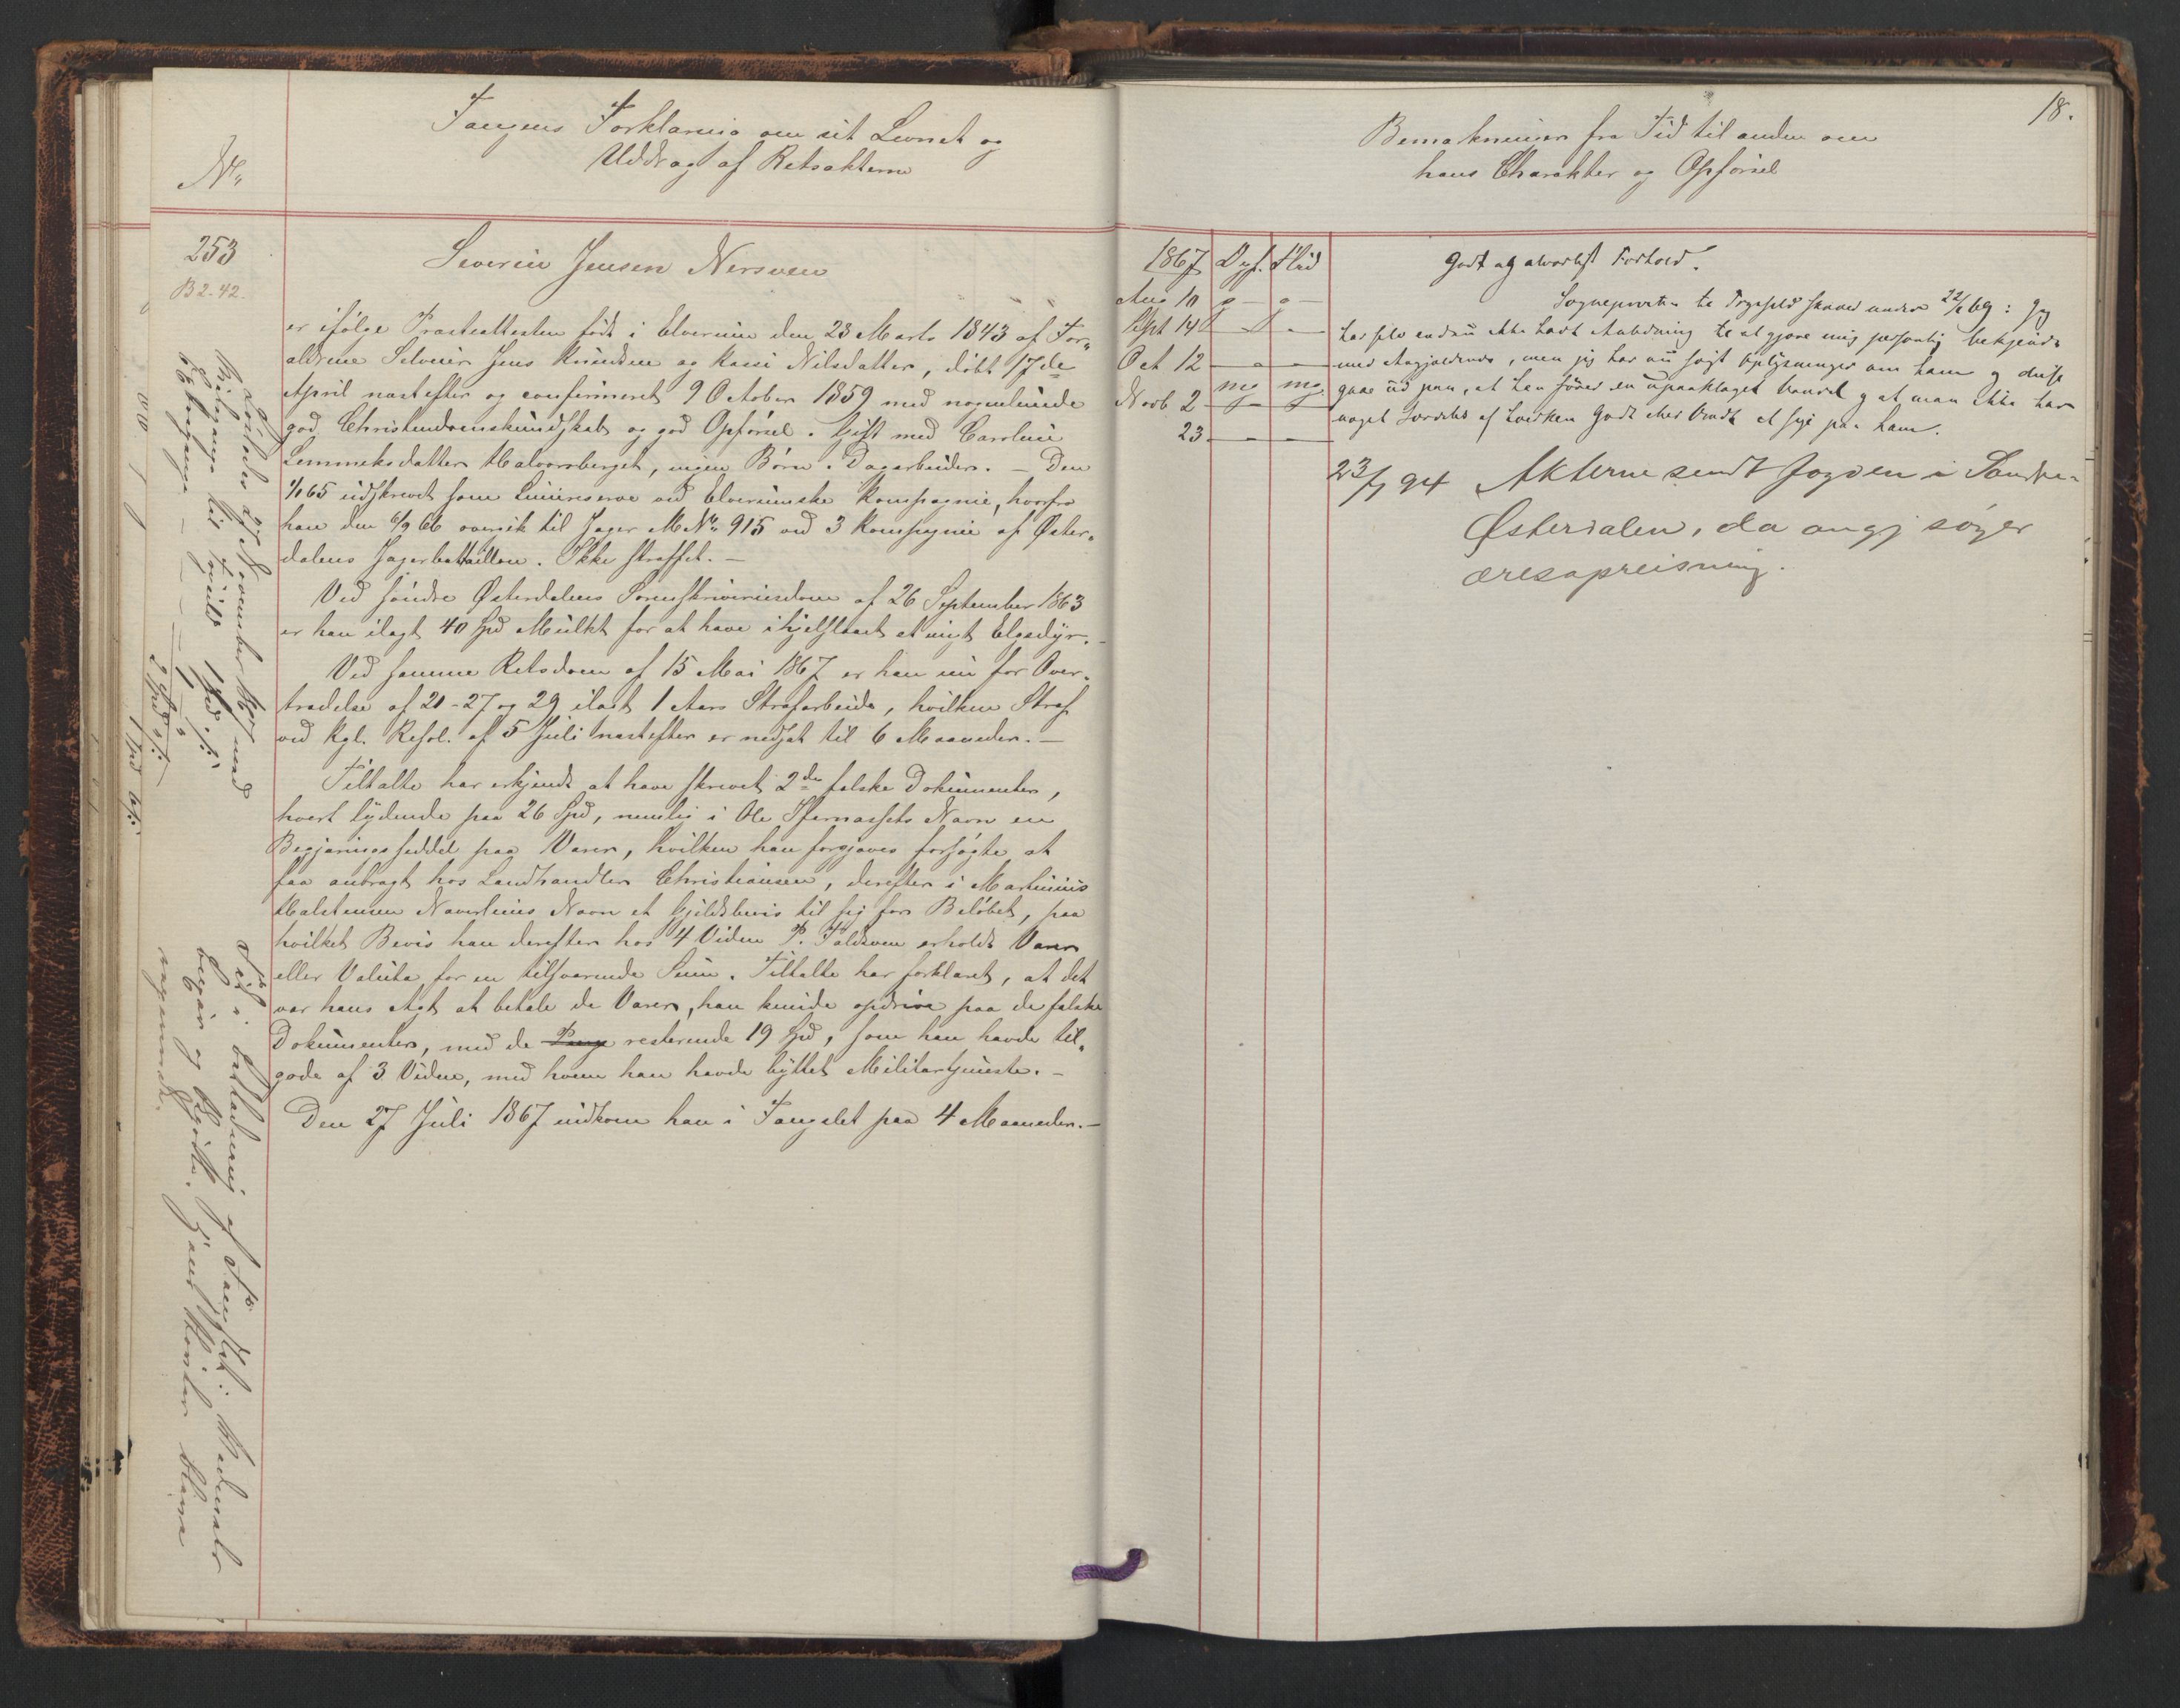 No.
Fangens Forklaring om sit Levnet og
Uddrag af Retsakterne
253
B 2. 42.
Severin Jensen Nersveen
er ifølge Præsteattesten født i Elverum den 23 Marts 1843 af For„
ældrene Selveier Jens Knudsen og Kari Nilsdatter, døbt 17de
April næstefter og confirmeret 9 October 1859 med nogenlunde
god Christendomskundskab og god Opførsel. Gift med Caroline
Halvorsberget, ingen Børn. Dagarbeider. – Den
65 udskrevet som Linireserve ved Elverumske Kompagnie, hvorfra
han den 6/9 66 overgik til Jæger M No. 915 ved 3 Kompagnie af Øster„
dalens Jægerbattaillon. Ikke straffet. –
Ved søndre Østerdalens Sorenskriveriesdom af 26 September 1863
er han ilagt 40 Spd Mulkt for at have ihjelslaaet et ungt Elgsdyr. –
Ved samme Retsdom af 15 Mai 1867 er han nu for Over„
trædelse af 21-27 og 29 ilagt 1 Aars Strafarbeide, hvilken Straf
ved Kgl. Resol. af 5 Juli næstefter er nedsat til 6 Maaneder. –
Tiltalte har erkjendt at have skrevet 2de falske Dokumenter,
hvert lydende paa 26 Spd, nemlig i Ole Navn en
Begjæringsseddel paa Varer, hvilken han forgjæves forsøgte at
faa anbragt hos Landhandler Christiansen, derefter i Martinius
Halstensen Navn et Gjeldsbevis til sig for Beløbet, paa
hvilket Bevis han derefter hos 4 Vidne P. erholdt Varer
eller Valuta for en tilsvarende Sum. Tiltalte har forklaret, at det
var hans Agt at betale de Varer, han kunde opdrive paa de falske
Dokumenter, med de resterende 19 Spd, som han havde til„
gode af 3 Vidne, med hvem han havde byttet Militærtjeneste. –
Den 27 Juli 1867 indkom han i Fangslet paa 4 Maaneder. –
Løsladt 27 November 1867 med
18.
Bemærkninger fra Tid til anden om
hans Charakter og Opførsel
1867 Opf. Flid
Aug 10 g – g –
Sept 14 – –
Oct 12 – –
Novb. 2 mg mg
23 – –
Godt og alvorligt Forhold.
Sognepresten til Trysild skrev under 22/ 69: Jeg
har selv endnu ikke havt Anledning til at gjøre mig personlig bekjendt
med Angjældende, men jeg har nu søgt Oplysninger om ham og disse
gaae ud paa, at han fører en upaaklaget Vandel og at man ikke har
noget Særdeles af hverken Godt eller Ondt at sige paa ham.
23/7 94 Akterne sendt fogden i Søndre-
Østerdalen, da angj søger
æresopreisning.